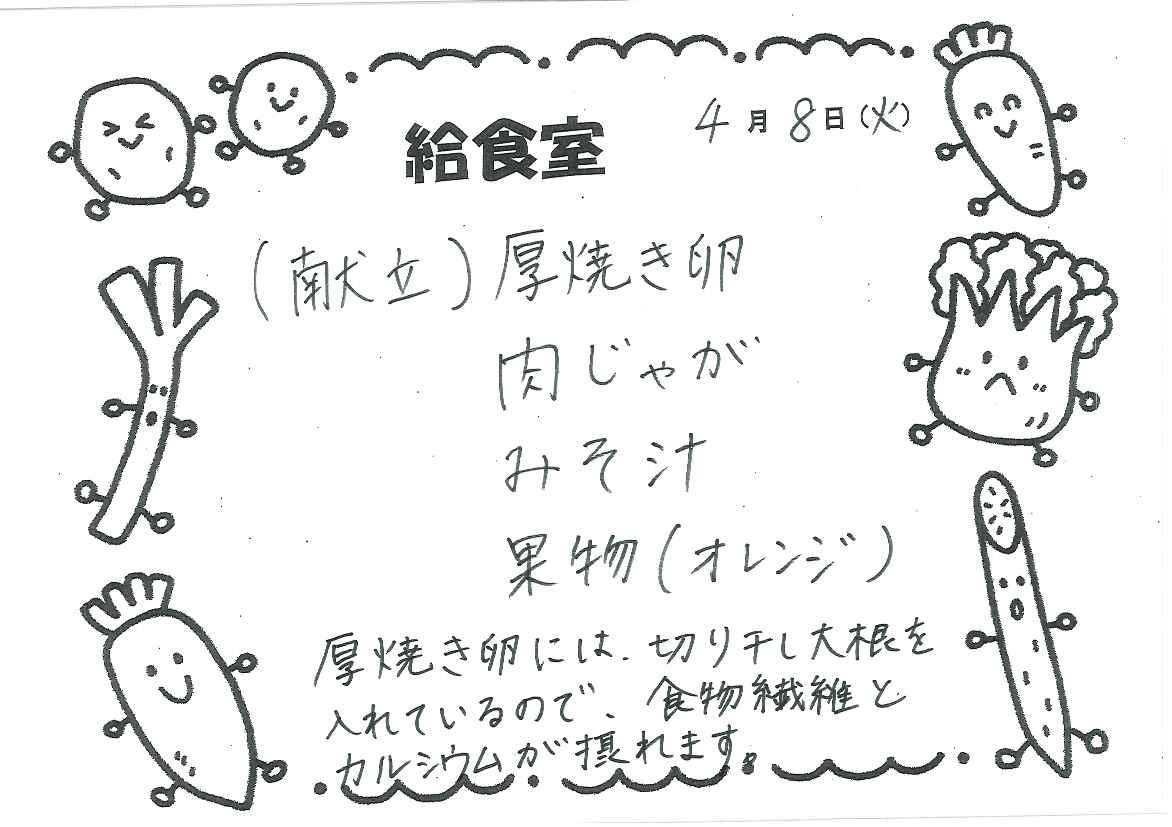 給食室 4月8日(火)
(献立)厚焼き卵
肉じゃが
みそ汁
果物(オレンジ)
厚焼き卵には、切り干し大根を
入れているので、食物繊維と
カルシウムが摂れます。